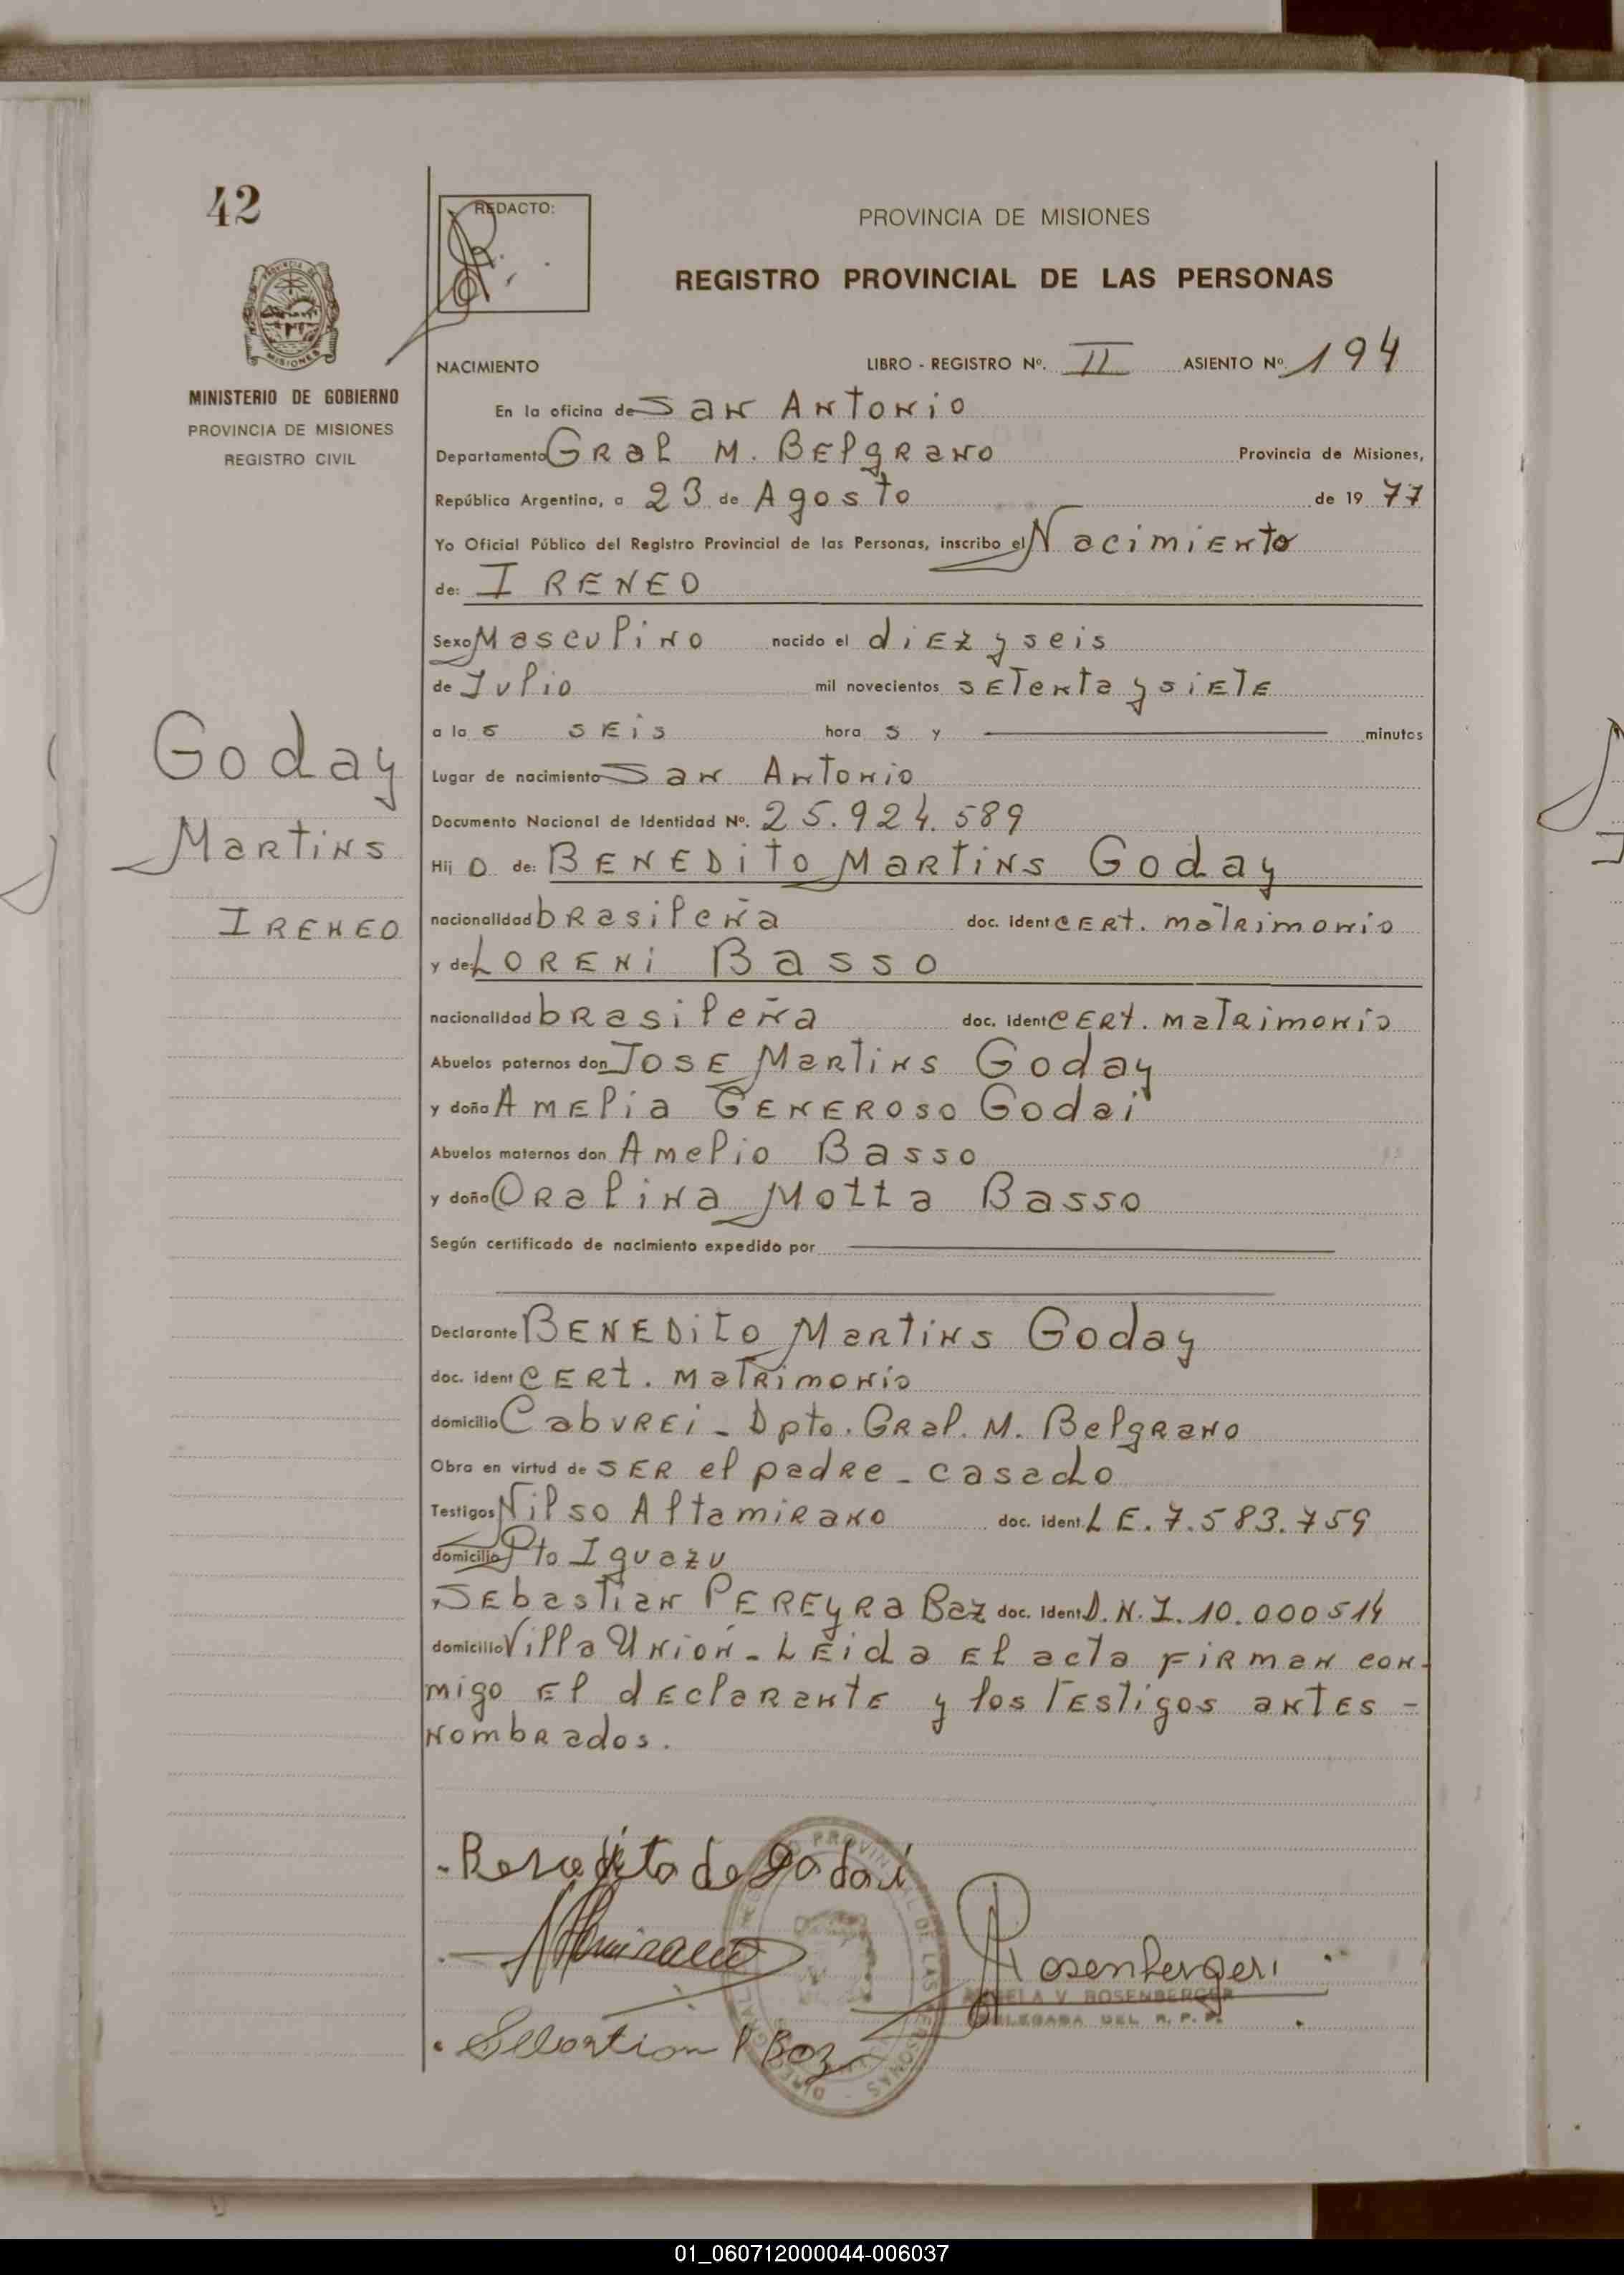 42
REDACTO:
PROVINCIA DE MISIONES
REGISTRO PROVINCIAL DE LAS PERSONAS
MISIONES
MINISTERIO DE GOBIERNO
PROVINCIA DE MISIONES
REGISTRO CIVIL
NACIMIENTO LIBRO - REGISTRO Nº. II ASIENTO Nº 194
En la oficina de San Antonio
Departamento Gral M. Belgrano Provincia de Misiones,
República Argentina, a 23 de Agosto de 19 77
Yo Oficial Público del Registro Provincial de las Personas, inscribo el Nacimiento
de: IRENEO
Sexo Masculino nacido el diez y seis
de Julio mil novecientos setenta y siete
a la s seis hora s y minutos
Goday
Martins
IRENEO
Lugar de nacimiento San Antonio
Documento Nacional de Identidad Nº. 25.924.589
Hij o de: BENEDiTO Martins Goday
nacionalidad brasileña doc. ident cert. matrimonio
y de: LORENi Basso
nacionalidad brasileña doc. ident cert. matrimonio
Abuelos paternos don Jose Martins Goday
y doña Amelia Generoso Godai
Abuelos maternos don Amelio Basso
y doña Oralina Motta Basso
Según certificado de nacimiento expedido por
Declarante BENEDiTO Martins Goday
doc. ident cert. matrimonio
domicilio Caburei - Dpto. Gral. M. Belgrano
Obra en virtud de ser el padre - casado
Testigos Nilso Altamirano doc. ident. L E. 7.583.759
domicilio Pto Iguazu
y Sebastian Pereyra Baz doc. ident D.N.I. 10.000514
domicilio Villa Unión - Leida el acta firman con-
migo el declarante y los testigos antes -
nombrados.
Benedito de godai
Altamirano
Rosenberger
ROSENBERGER
DELEGADA DEL R. P. P.
Sebastian P Baz
01_060712000044-006037